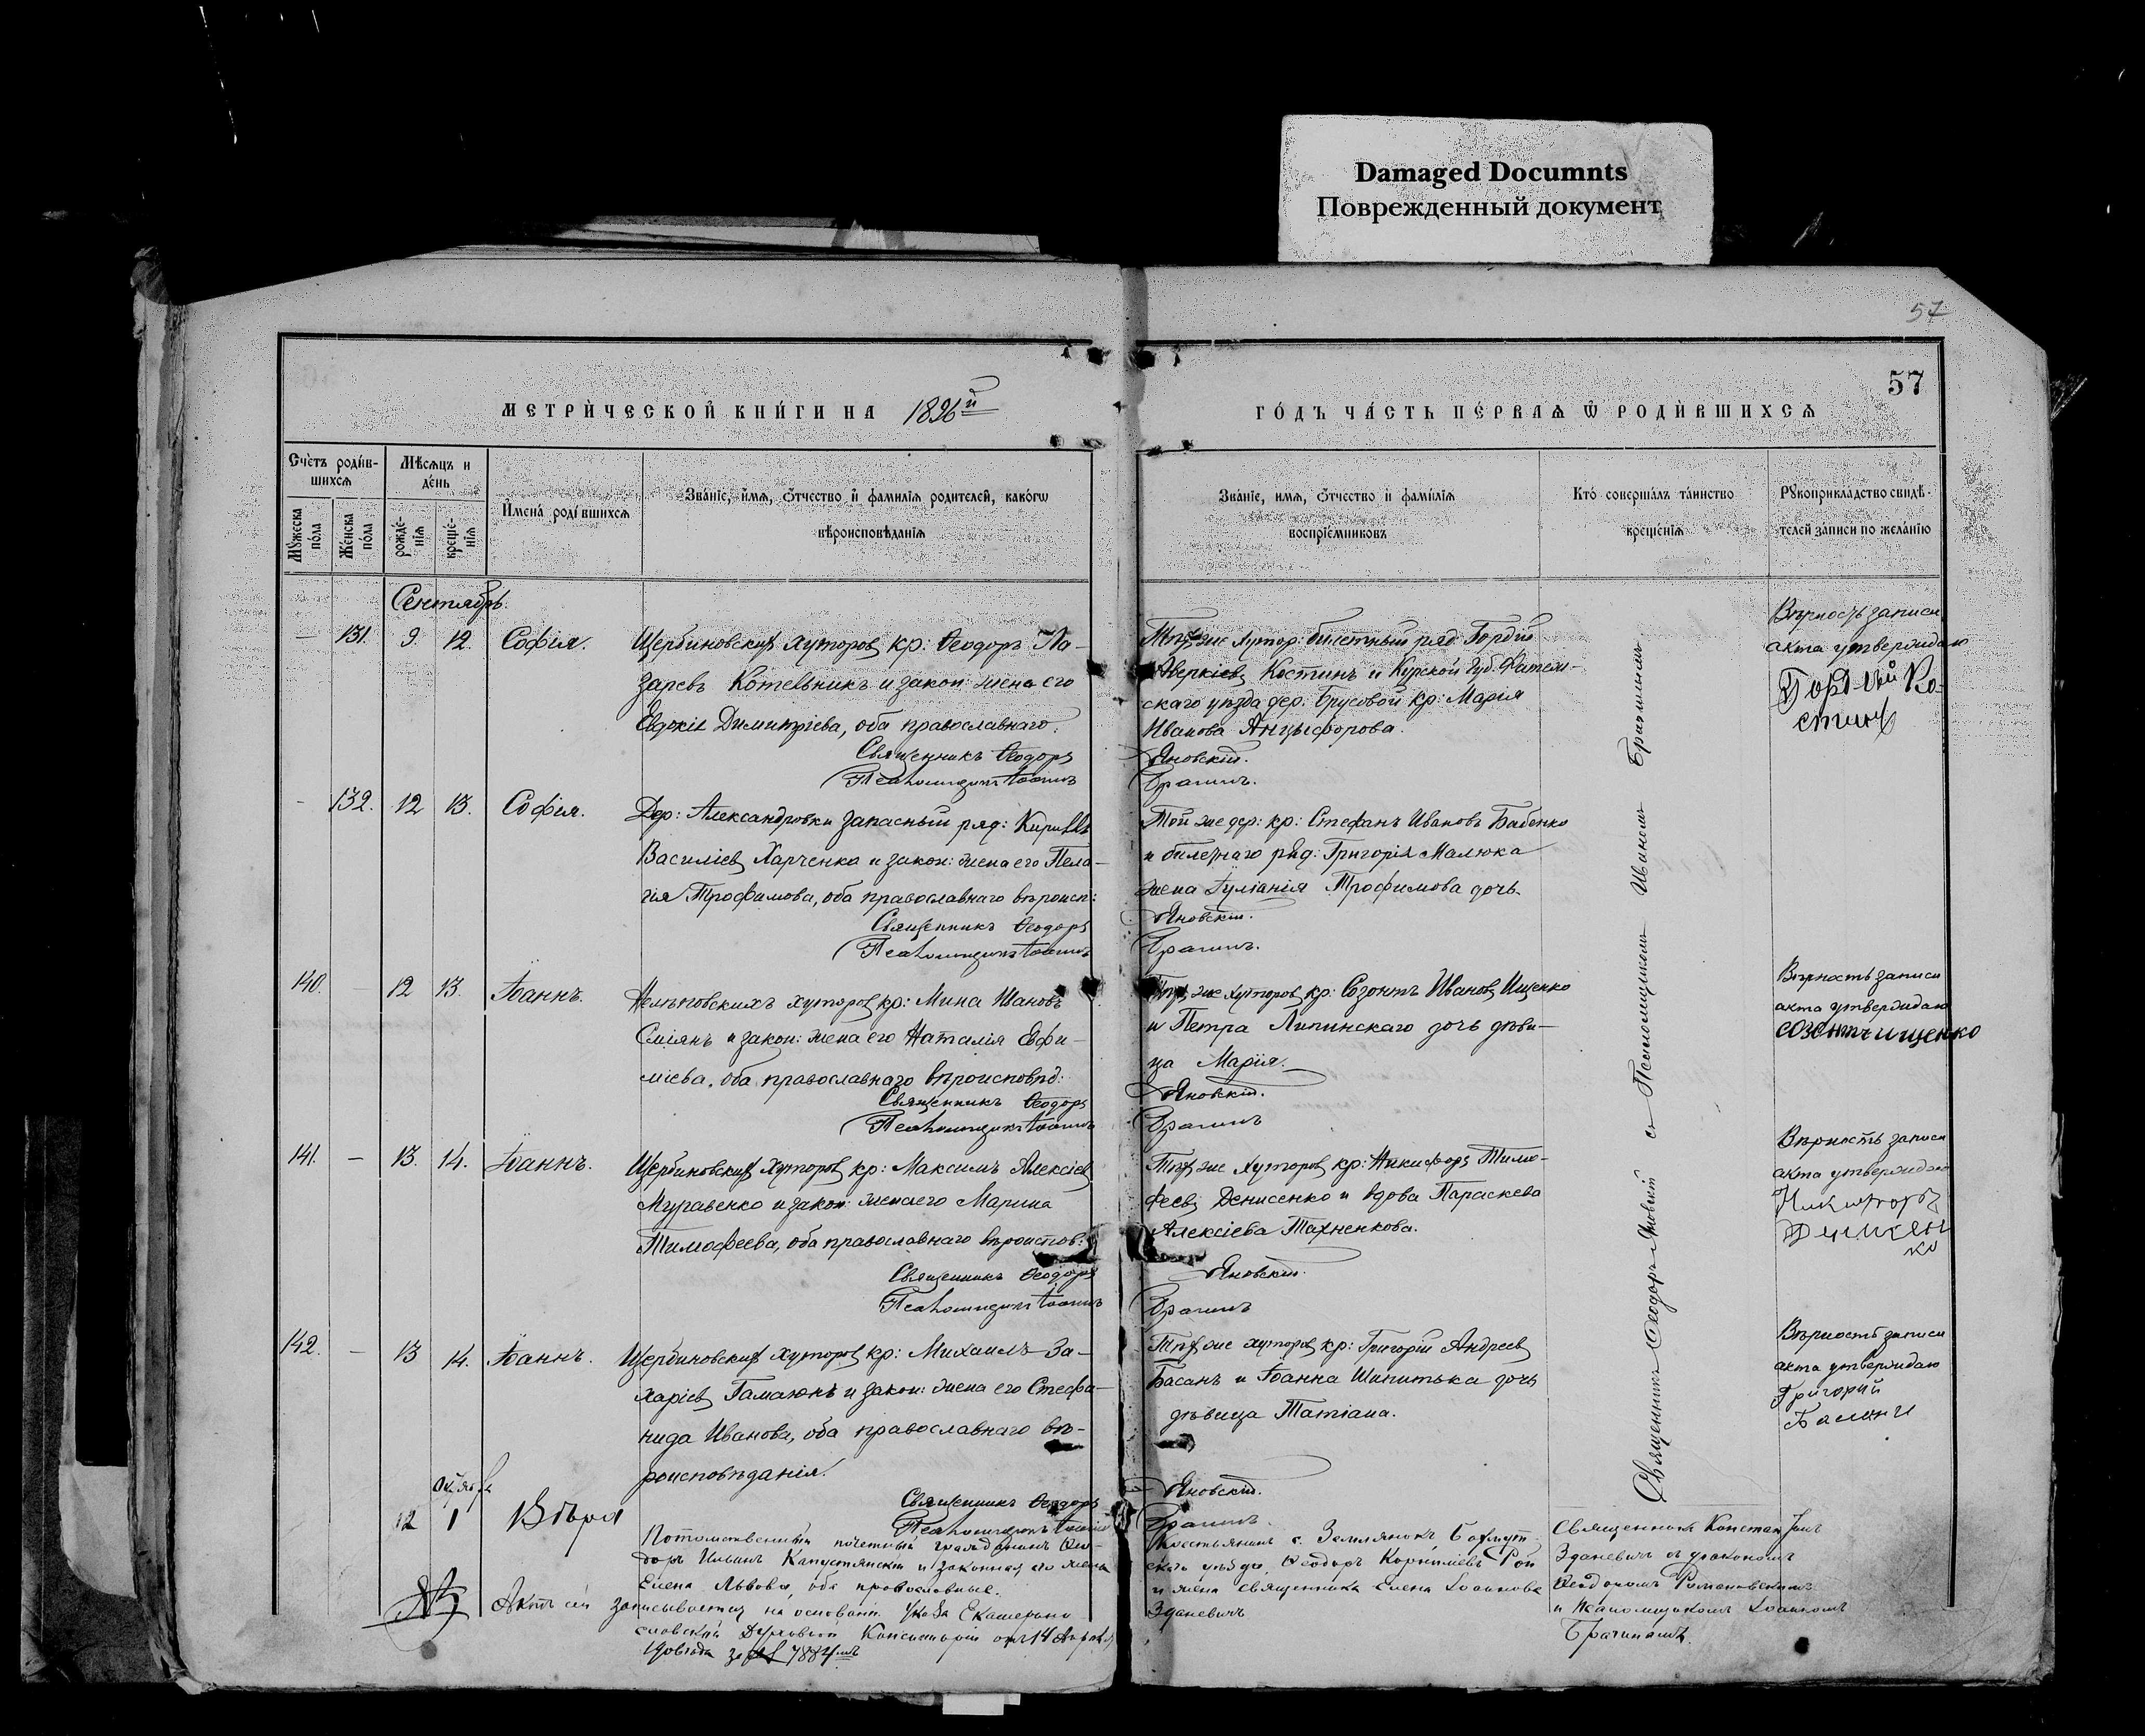 Damaged Documnts
Поврежденный документ
57
57
МЕТРИЧЕСКОЙ КНИГИ НА 1896й
ГОДЪ ЧАСТЬ ПЕРВАѦ Ѿ РОДИВШИХСѦ
Счетъ родив-
шихсѧ
Мужеска пола
Женска пола
Мѣсѧцъ и
день
рожде-
нїѧ
креще-
нїѧ
Имена родившихсѧ
Званїе, имѧ, ѻтчество и фамилїѧ родителей, какогѡ
вѣроисповѣданїѧ
Званїе, имѧ, ѻтчество и фамилїѧ
воспрїемниковъ
Кто совершалъ таинство
крещенїѧ
Рукоприкладство свидѣ-
телей записи по желанїю
Сентябрь.
— 131. 9. 12. София.
Щербиновских хуторов кр: Ѳеодоръ Ла-
заревъ Котельникъ и закон: жена его
Евдокія Димитріева, оба православнаго.
Священникъ Ѳеодоръ
Псаломщикъ Іоаннъ
Тѣх же хутор: билетный ряд: Гордій
Аверкіевъ Костинъ и Курской Губ. Фатеж-
скаго уѣзда дер: Брусовой кр: Марія
Иванова Анцыфорова.
Яновскій.
Брагинъ.
Вѣрность записи
акта утверждаю
Гордій Ко-
стинъ
- 132. 12 13. Софія.
Дер: Александровки запасный ряд: Кириллъ
Василіев Харченко и закон: жена его Пела-
гія Трофимова, оба православнаго вѣроисп:
Священникъ Ѳеодоръ
Псаломщикъ Іоаннъ
Той же дер: кр: Стефанъ Ивановъ Бабенко
и билетнаго ряд: Григорія Малюка
жена Іуліанія Трофимова дочь
Яновскій.
Брагинъ.
140. — 12 13. Іоаннъ.
хуторов кр: Мина Ивановъ
Сміянъ и закон: жена его Наталія Евфи-
міева, оба православнаго вѣроисповѣд:
Священникъ Ѳеодоръ
Псаломщикъ Іоаннъ
Тѣх же хуторов кр: Созонтъ Иванов Ищенко
и Петра Липинскаго дочь дѣви-
ца Марія.
Яновскій.
Брагинъ
Вѣрность записи
акта утверждаю
Созонтъ ищенко
141. — 13. 14. Іоаннъ.
Щербиновских хуторов кр: Максимъ Алексіев
Муравенко и закон: жена его Марина
Тимофеева, оба православнаго вѣроиспов:
Священникъ Ѳеодоръ
Псаломщикъ Іоаннъ
Тѣх же хуторов кр: Никифоръ Тимо-
феевъ Денисенко и вдова Параскева
Алексіева Тахненкова.
Яновскій.
Брагинъ
Вѣрность записи
акта утверждаю
Никифоръ
Денисен
ко
142. — 13 14. Іоаннъ.
Щербиновских хуторов кр: Михаилъ За-
харіев Гамаюнъ и закон: жена его Стефа-
нида Иванова, оба православнаго вѣ-
роисповѣданія.
Священникъ Ѳеодоръ
Псаломщикъ Іоаннъ
Тѣх же хуторов кр: Григорій Андреев
Басанъ и Іоанна Шипитька дочь
дѣвица Татіана.
Яновскій.
Брагинъ.
Вѣрность записи
акта утверждаю
Григорий
Священникъ Ѳеодоръ Яновскій съ Псаломщикомъ Иваномъ Брагинымъ
Октября
12 1 Вѣра
Потомственный почетный гражданинъ Ѳео-
доръ Ильинъ Капустянскій и законная его жена
Елена Львова, оба православные.
Крестьянинъ с. Землянокъ Бахмут-
скаго уѣзда, Ѳеодоръ Корниліевъ Рой
и жена священника Елена Іоаннова
Зданевичъ
Священникъ Константинъ
Зданевичъ съ діакономъ
Ѳеодоромъ Романовскимъ
и псаломщикомъ Іоанномъ
Брагинымъ.
Актъ сей записывается на основаніи Указа Екатерино
славской Духовной Консисторіи отъ 14 Апрѣля
190 года за № 7884мъ